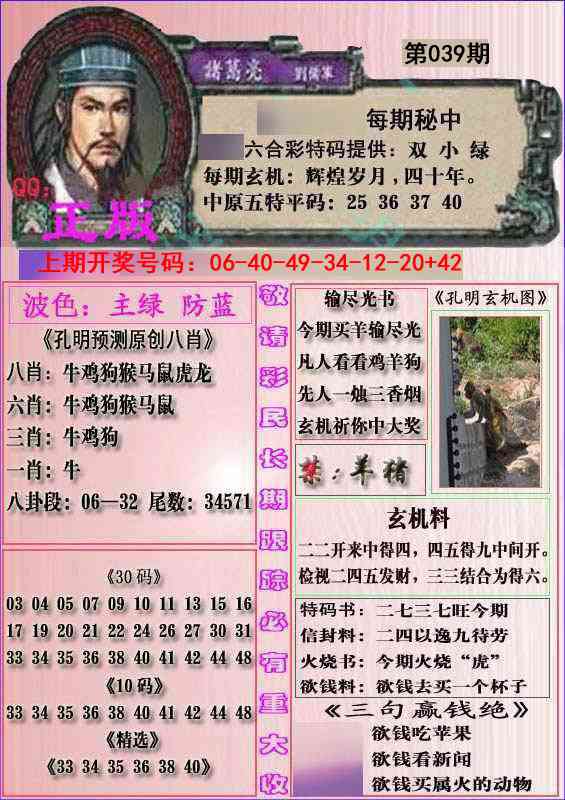 第039期
諸葛亮
劉儒軍
每期秘中
六合彩特码提供：双 小 绿
每期玄机：辉煌岁月,四十年。
中原五特平码：25 36 37 40
QQ:
正版
上期开奖号码：06-40-49-34-12-20+42
波色：主绿 防蓝
《孔明预测原创八肖》
八肖：牛鸡狗猴马鼠虎龙
六肖：牛鸡狗猴马鼠
三肖：牛鸡狗
一肖：牛
八卦段：06—32 尾数：34571
《30码》
03 04 05 07 09 10 11 13 15 16
17 19 20 21 22 24 26 27 30 31
33 34 35 36 38 40 41 42 44 48
《10码》
33 34 35 36 38 40 41 42 44 48
《精选》
《33 34 35 36 38 40》
敬请彩民长期跟踪必有重大收
输尽光书
今期买羊输尽光
凡人看看鸡羊狗
先人一烛三香烟
玄机祈你中大奖
禁：羊猪
《孔明玄机图》
玄机料
二二开来中得四，四五得九中间开。
检视二四五发财，三三结合为得六。
特码书：二七三七旺今期
信封料：二四以逸九待劳
火烧书：今期火烧“虎”
欲钱料：欲钱去买一个杯子
《三句赢钱绝》
欲钱吃苹果
欲钱看新闻
欲钱买属火的动物